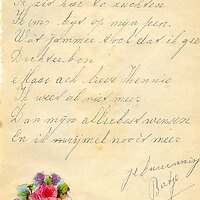 Ik zit hier te zuchten
En bijt op mijn pen.
Wat jammer toch dat ik geen
Dichter ben
Maar ach lieve Hennie
Ik weet al niet meer
Dan mijn allerbest wensen
En ik rijmel nooit meer
je
Batje